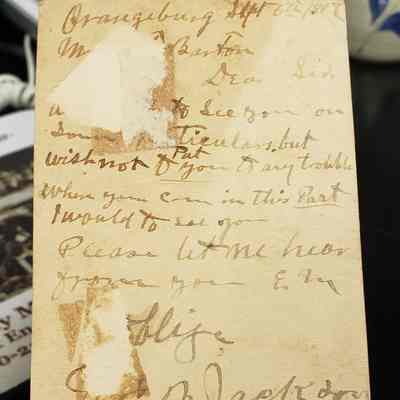 Orangeburg Sept 6th
M Barton
Dear Sir
a to See you on
ticulars, but
wish not to Put you to any trouble
when you com in this Part
I would to see you
Please let me hear
from you E M
Oblige
Jackson
y M
En
0-2